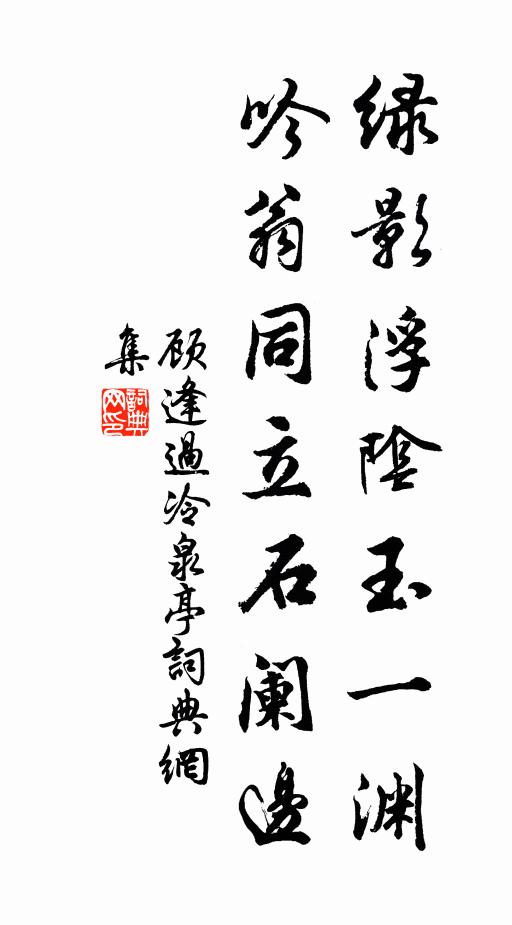 绿影浮陰玉一渊
吟翁同立石阑邊
顾逢過冷泉亭詞典網
集
詞典
网印